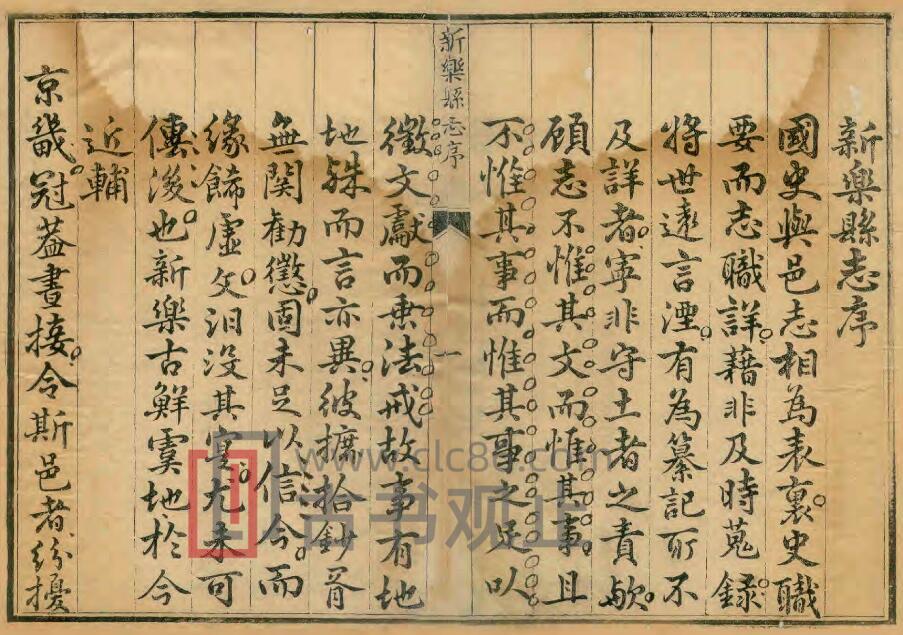 新樂縣志序
國史與邑志相為表裏史職
要而志職詳藉非及時蒐錄
將世遠言湮有為纂記所不
及詳者寧非守土者之責歟
顧志不惟其文而惟其事且
不惟其事而惟其事之足以
新樂縣志序
一
徵文獻而垂法戒故事有地
地殊而言亦異彼摭拾鈔胥
無関勸懲固未足以信今而
緣飾虛文汨没其實尤未可
傳後也新樂古鮮虞地於今
近輔
京畿冠蓋晝接令斯邑者紛擾
www.clc86.com
古书观止